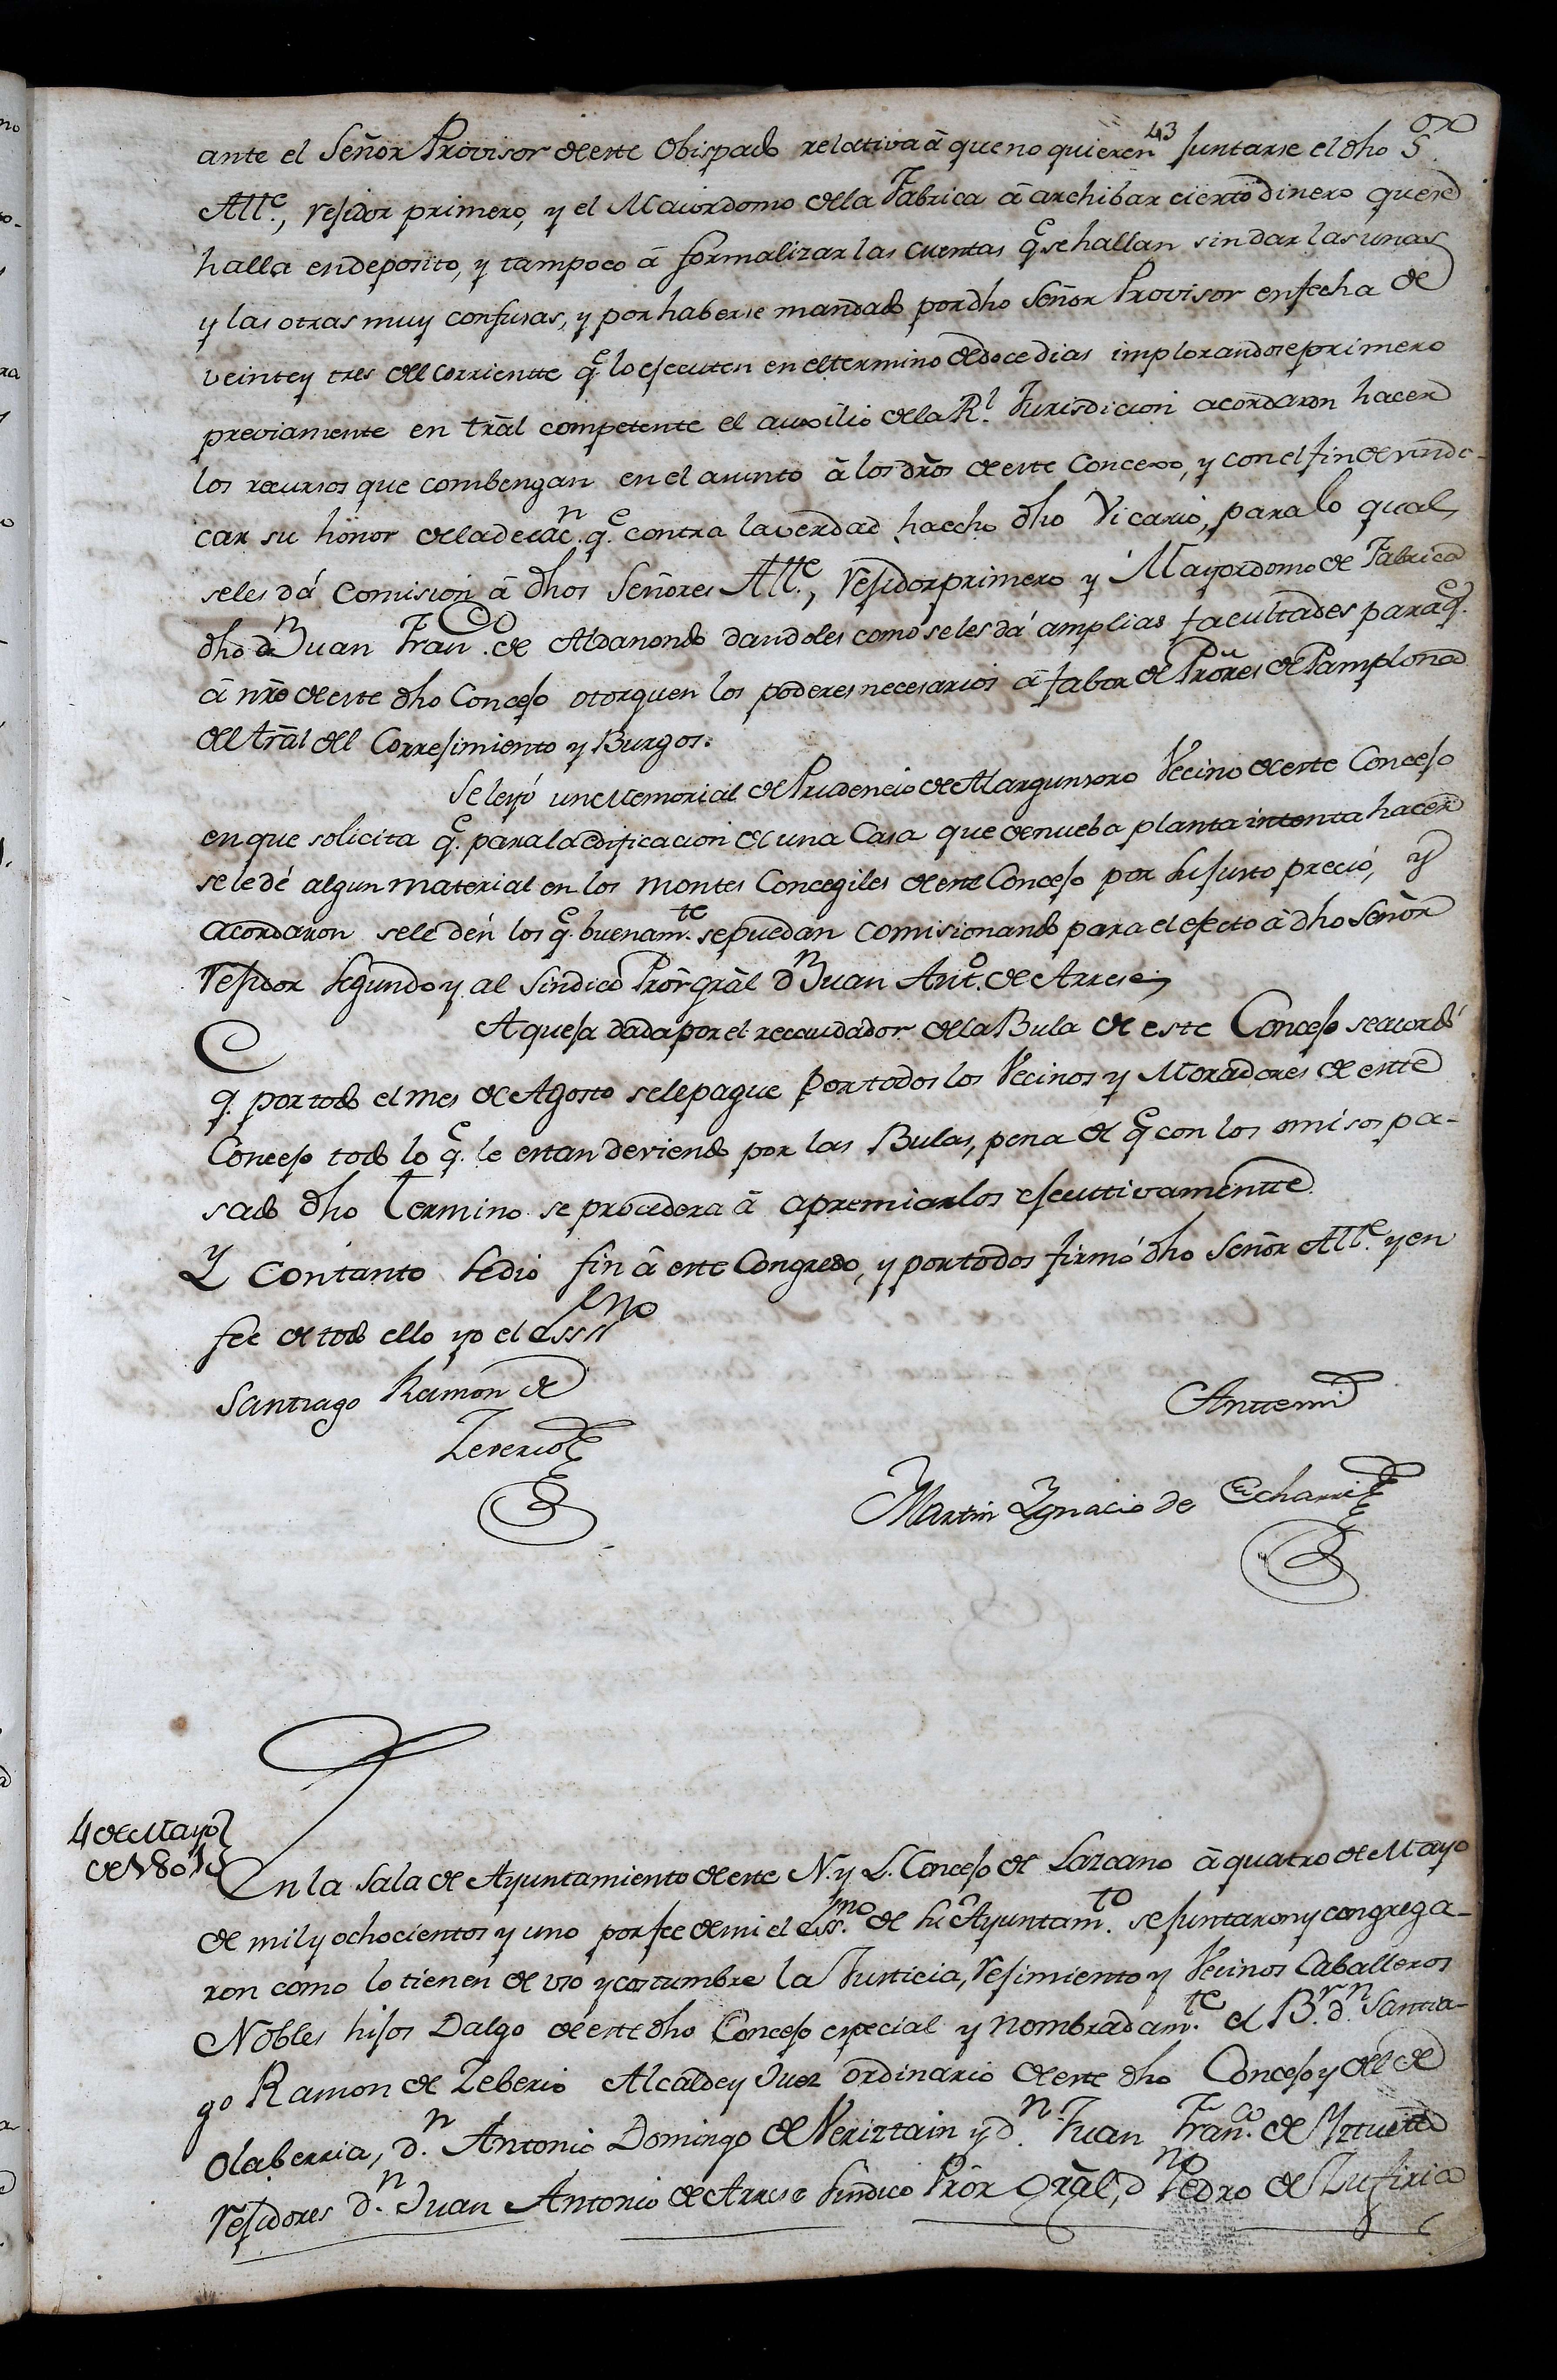 43
ante el Señor Provisor de este Obispado relativa â que no quieren Juntarse el dho S.
Alle., rejidor primero, y el Maiordomo de la Fabrica â archibar cierto dinero que se
halla en deposito, y tampoco â formalizar las cuentas qe se hallan sin dar las unas
y las otras muy confusas, y por haberse mandado por dho Señor Provisor en fecha de
veinte y tres del corriente qe lo ejecuten en el termino de doce dias implorandose primero
previamente en trâl competente el auxilio de la Rl. Jurisdicion acordaron hacer
los recursos que combengan en el asunto â los dr̃os de este Concexo, y con el fin de vindi-
car su honor de la decacn. qe. contra la verdad ha echo dho Vicario, para lo qual
se les dá Comision â dhos Señores Alle., Rejidor primero y Mayordomo de Fabrica
dho dn Juan Franco. de Aldanondo dandoles como se les dá amplias facultades para qe.
â nr̃e de este dho Concejo otorguen los poderes necesarios â fabor de Prõres de Pamplona
del trâl del Correjimiento y Burgos.
Se leyó un Memorial de Prudencio de Alargunsoro Vecino de este Concejo
en que solicita qe. para la edificacion de una Casa que de nueba planta intenta hacer
se le dé algun material en los montes Concegiles de este Concejo por su justo precio, y
acordaron se le dén los qe. buenamte. se puedan comisionando para el efecto â dho Señor
Rejidor Segundo y al Sindico Prõr grâl dn Juan Anto. de Arrese
A queja dada por el recaudador de la Bula de este Concejo se acordó
qe. por todo el mes de Agosto se le pague por todos los Vecinos y Moradores de este
Concejo todo lo qe. le estan deviendo por las Bulas, pena de qe con los omisos pa-
sado dho termino se procedera â apremiarlos ejecutivamente.
Y con tanto se dio fin â este Congreso, y por todos firmó dho Señor Alle. y en
fee de todo ello yo el essno
Santiago Ramon de
Zeverio
Ante mi
Martin Ygnacio de Echarri
4 de Mayo
de 1801
En la Sala de Ayuntamiento de este N. y L. Concejo de Lazcano â quatro de Mayo
de mil y ochocientos y uno por fee de mi el essno. de su Ayuntamto. se juntaron y congrega-
ron como lo tienen de uso y costumbre la Justicia, Rejimiento y Vecinos Caballeros
Nobles hijos Dalgo de este dho Concejo especial y nombradamte. el Br. dn. Santia-
go Ramon de Zeberio Alcalde y Juez ordinario de este dho Concejo y del de
Olaberria, dn. Antonio Domingo de Veriztain y dn. Juan Franco. de Yztueta
Rejidores dn. Juan Antonio de Arrese Sindico Prõr Grâl, dn Pedro de Zufiria